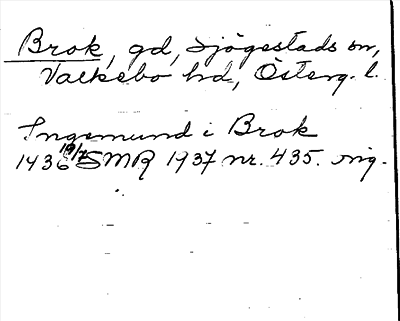 Brok, gd, Sjögestads sn,
Valkebo hd, Österg. l.
Ingemund i Brok
1436 19/7 SMR 1937 nr. 435. sig.